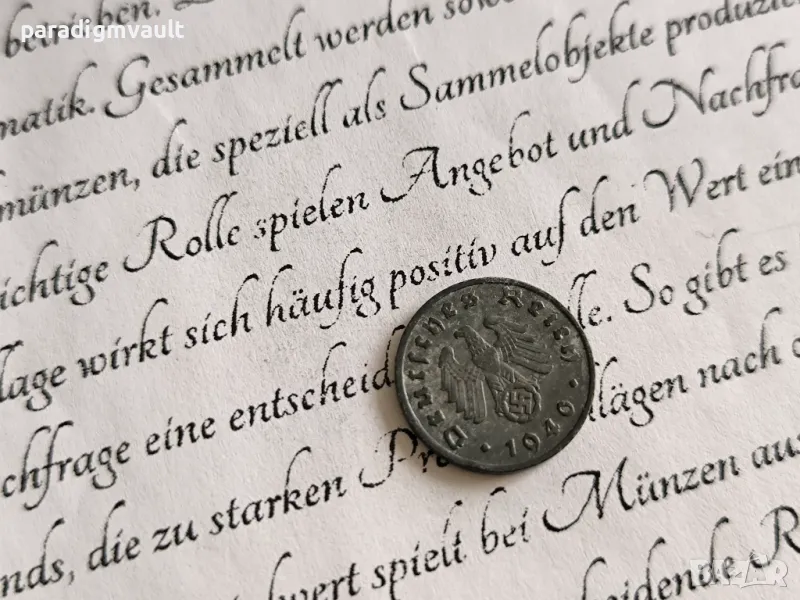 betrieben.
paradigmvault
matik. Gesammelt werden sowo
münzen, die speziell als Sammelobjekte produzie
ichtige Rolle spielen Angebot und Nachfra
lage wirkt sich häufig positiv auf den Wert ein
chfrage eine entscheid lle. So gibt es
nds, die zu starken Pre lägen nach o
wert spielt bei Münzen aus
eidende R
Deutsches Reich
1940
BAZAR